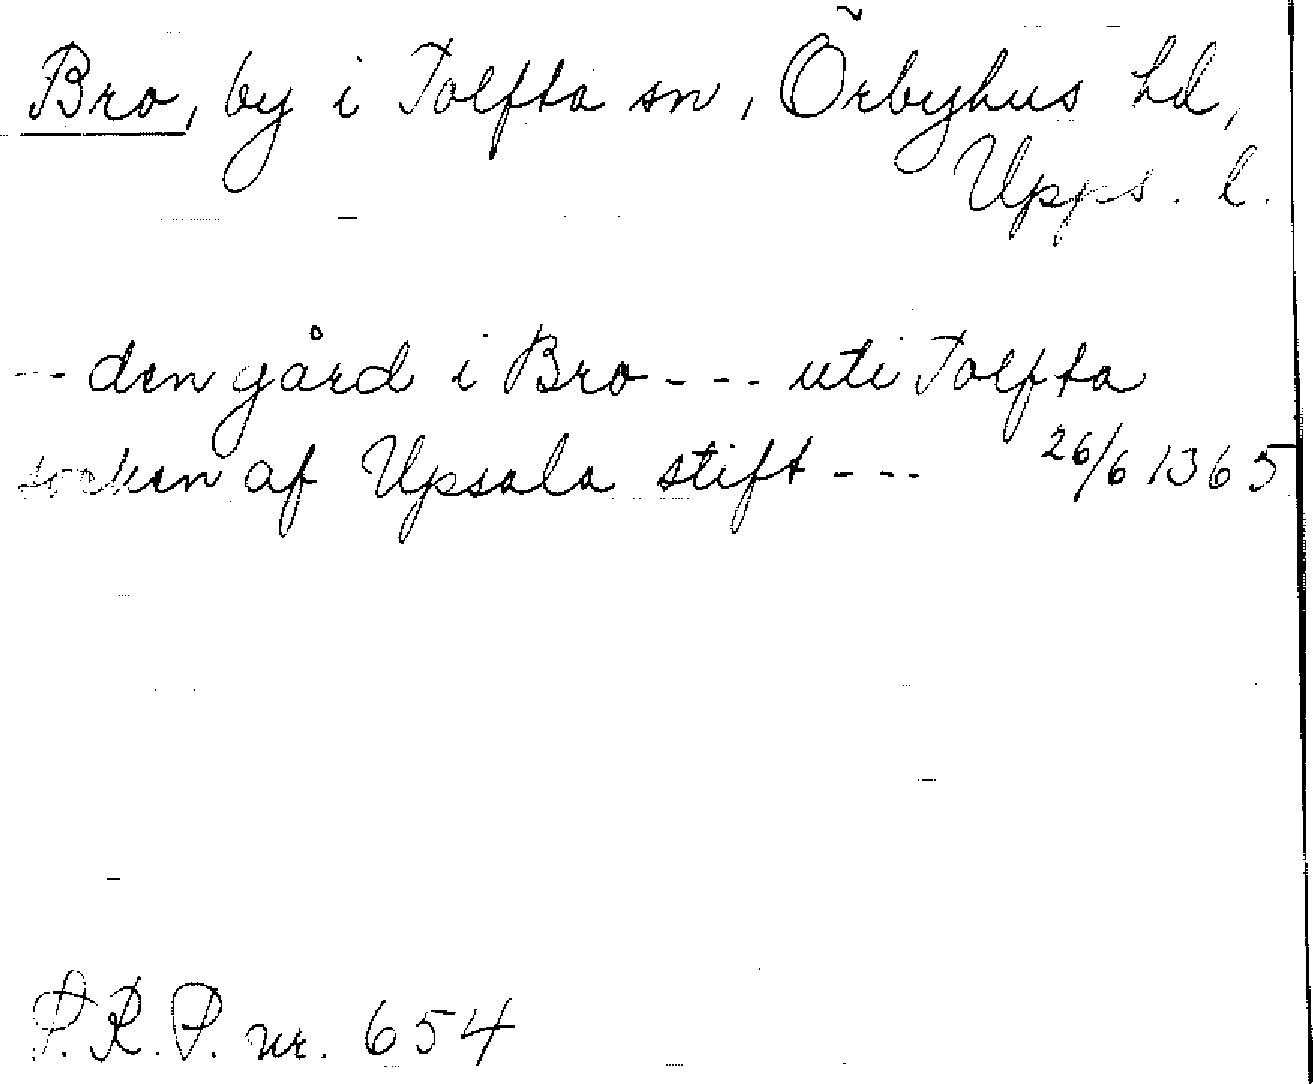 Bro, by i Tolfta sn, Örbyhus hd,
Upps. l.
-- den gård i Bro --- uti Tolfta
socken af Upsala stift --- 26/6 1365
P.R.P. nr. 654